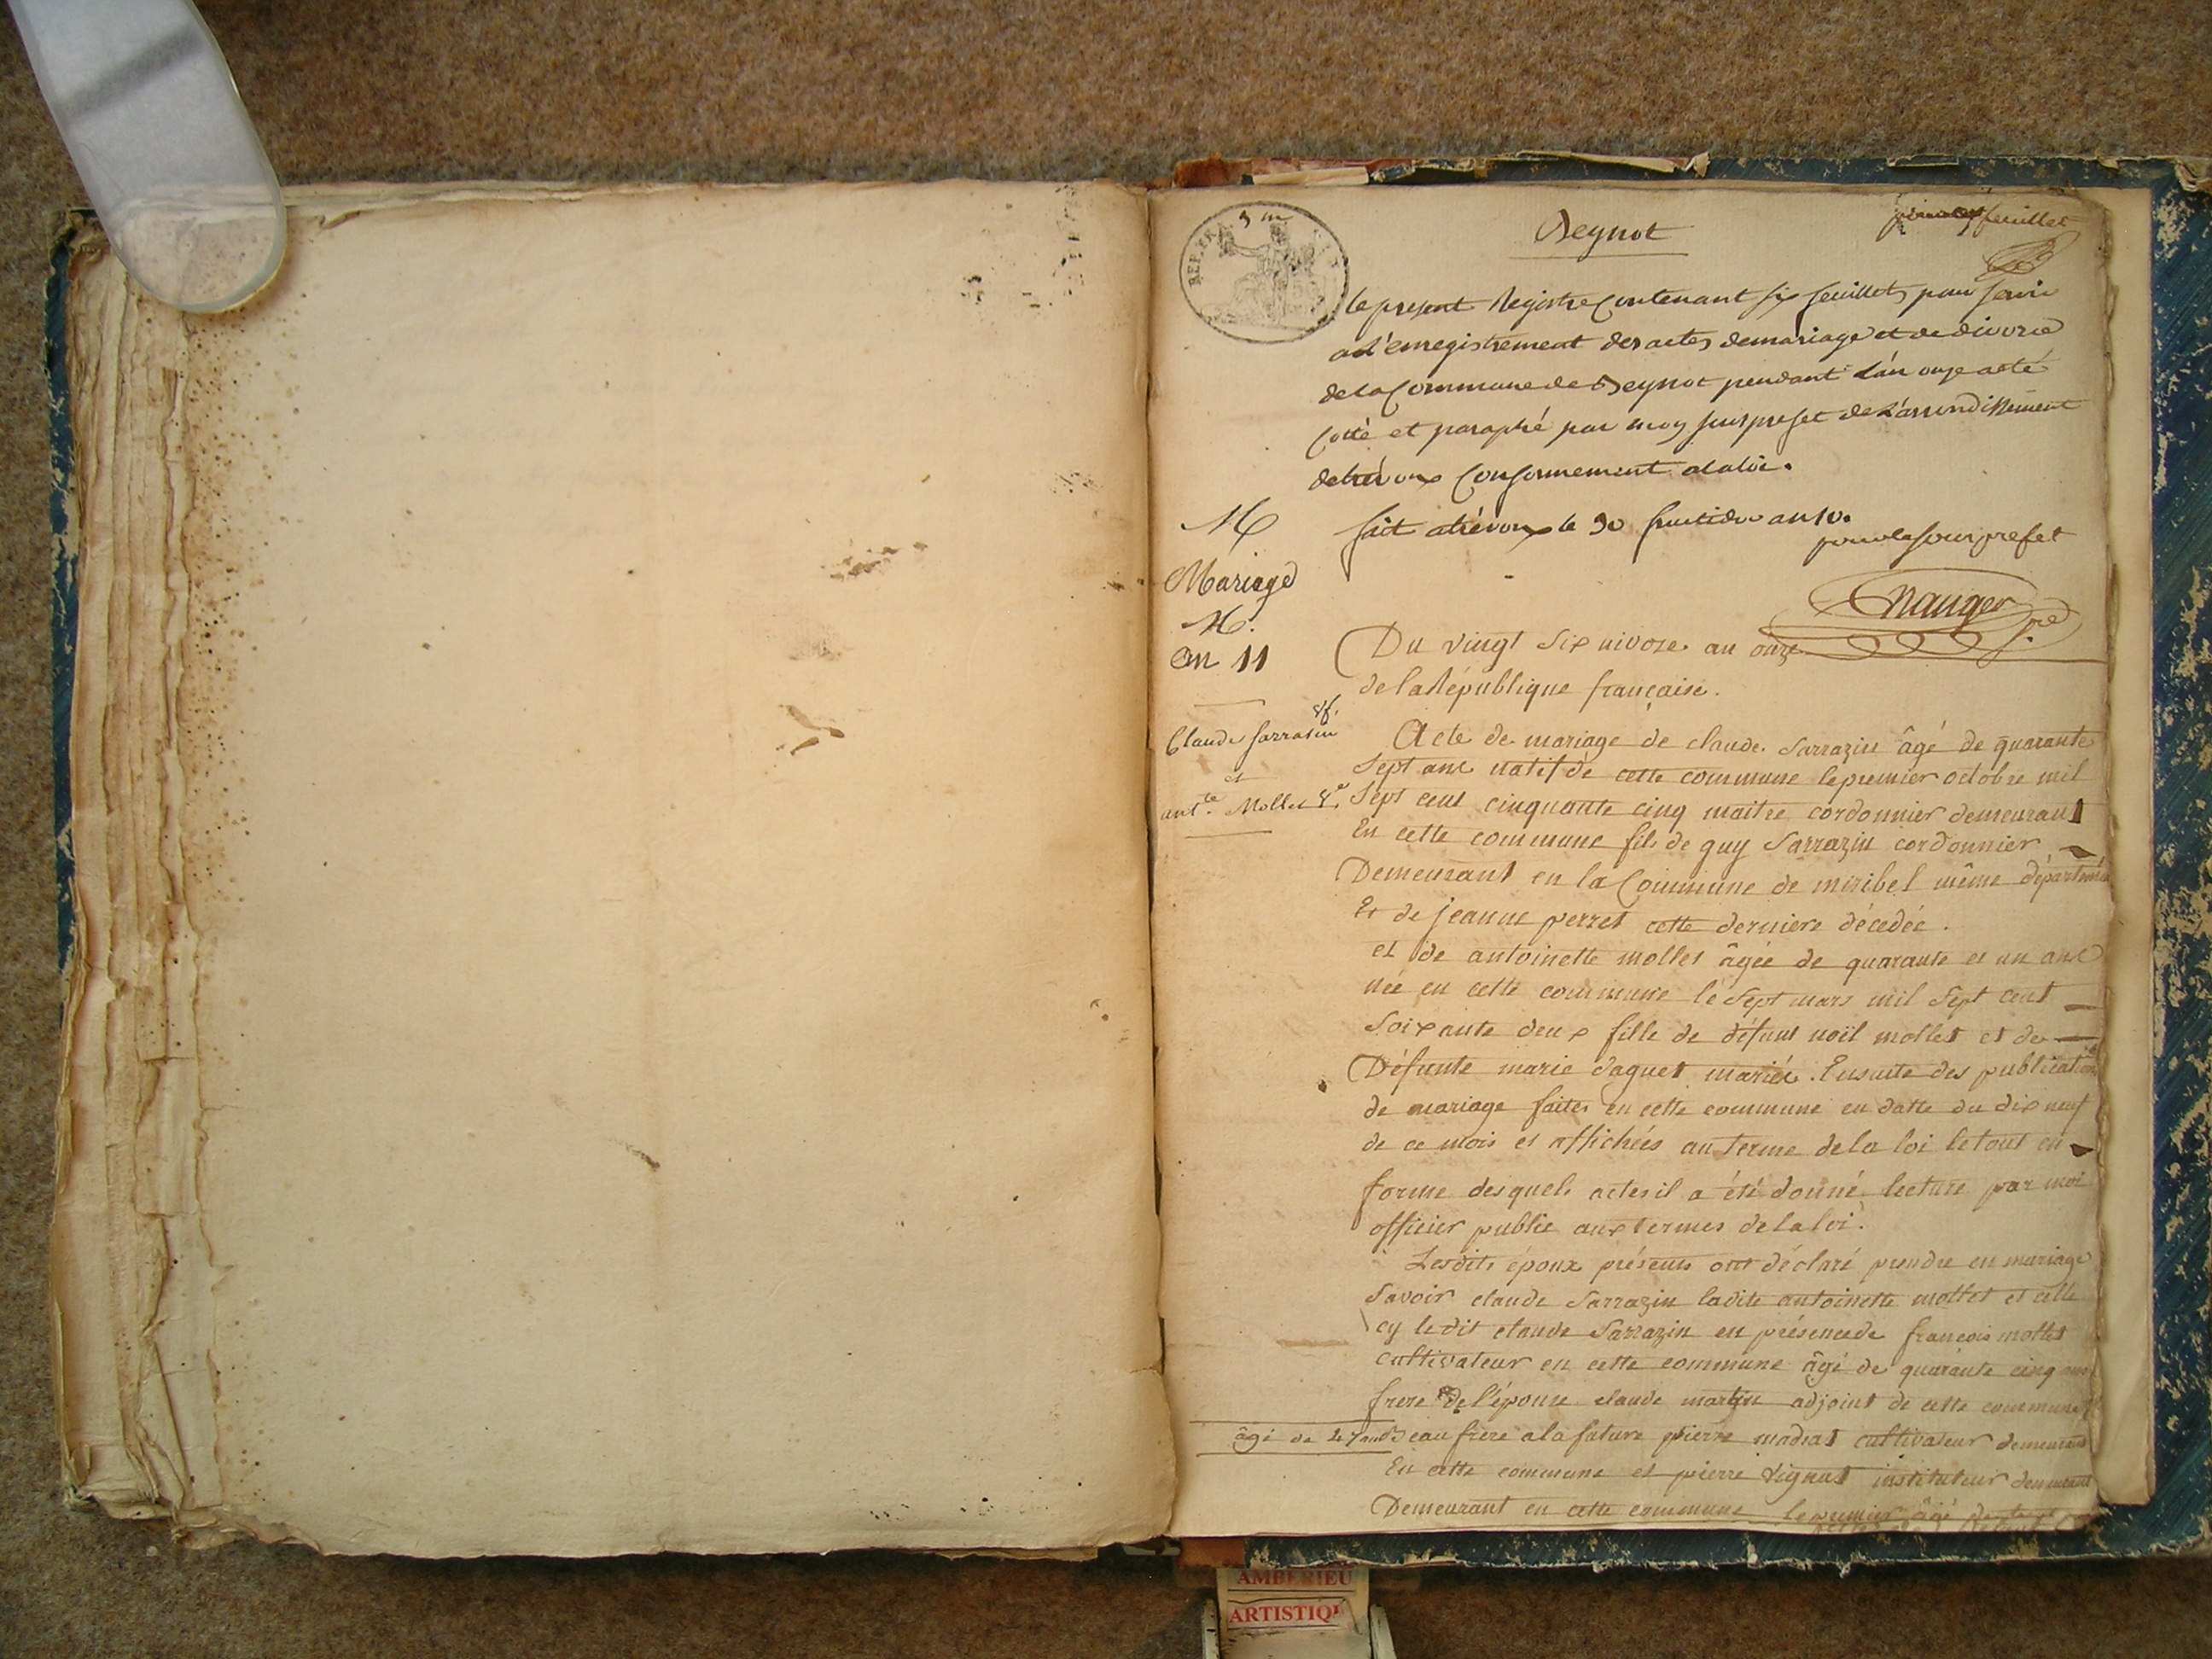 REP. FRA
Beynot
premier feuillet
le present Registre Contenant six feuillets pour servir
a l'enregistrement des actes de mariage et de divorce
de la Commune de Beynot pendant l'an onze a été
Cotté et paraphé par moy sousprefet de l'arrondissement
de trévoux Conformement a la loi.
fait a trévoux le 30 fructidor an 10.
pour le sousprefet
Mariage
an 11
Du vingt six nivose an onze
de la République française.
Claude Sarrasin
et
ant.te Mollet
Acte de mariage de claude Sarrazin âgé de quarante
Sept ans natif de cette commune le premier octobre mil
Sept cent cinquante cinq maitre cordonnier demeurant
En cette commune fils de guy Sarrazin cordonnier
Demeurant en la Commune de miribel même département
Et de jeanne perret cette derniere décedée.
et de antoinette mollet âgée de quarante et un ans
née en cette commune le Sept mars mil Sept cent
Soixante deux fille de défunt noël mollet et de
Défunte marie daguet mariés. Ensuite des publications
de mariage faites en cette commune en datte du dix neuf
de ce mois et affichées au terme de la loi le tout en
forme desquels actes il a été donné lecture par moi
officier public aux termes de la loi.
Lesdits époux présents ont déclaré prendre en mariage
Savoir claude Sarrazin ladite antoinette mollet et celle
cy ledit claude Sarrazin en présence de françois mollet
cultivateur en cette commune âgé de quarante cinq ans
frere de l'épouse claude martin adjoint de cette commune
âgé de 47 ans Beau frere a la future pierre cultivateur demeurant
En cette commune et pierre vignat instituteur demeurant
Demeurant en cette commune le premier âgé de
AMBERIEU
ARTISTIQ